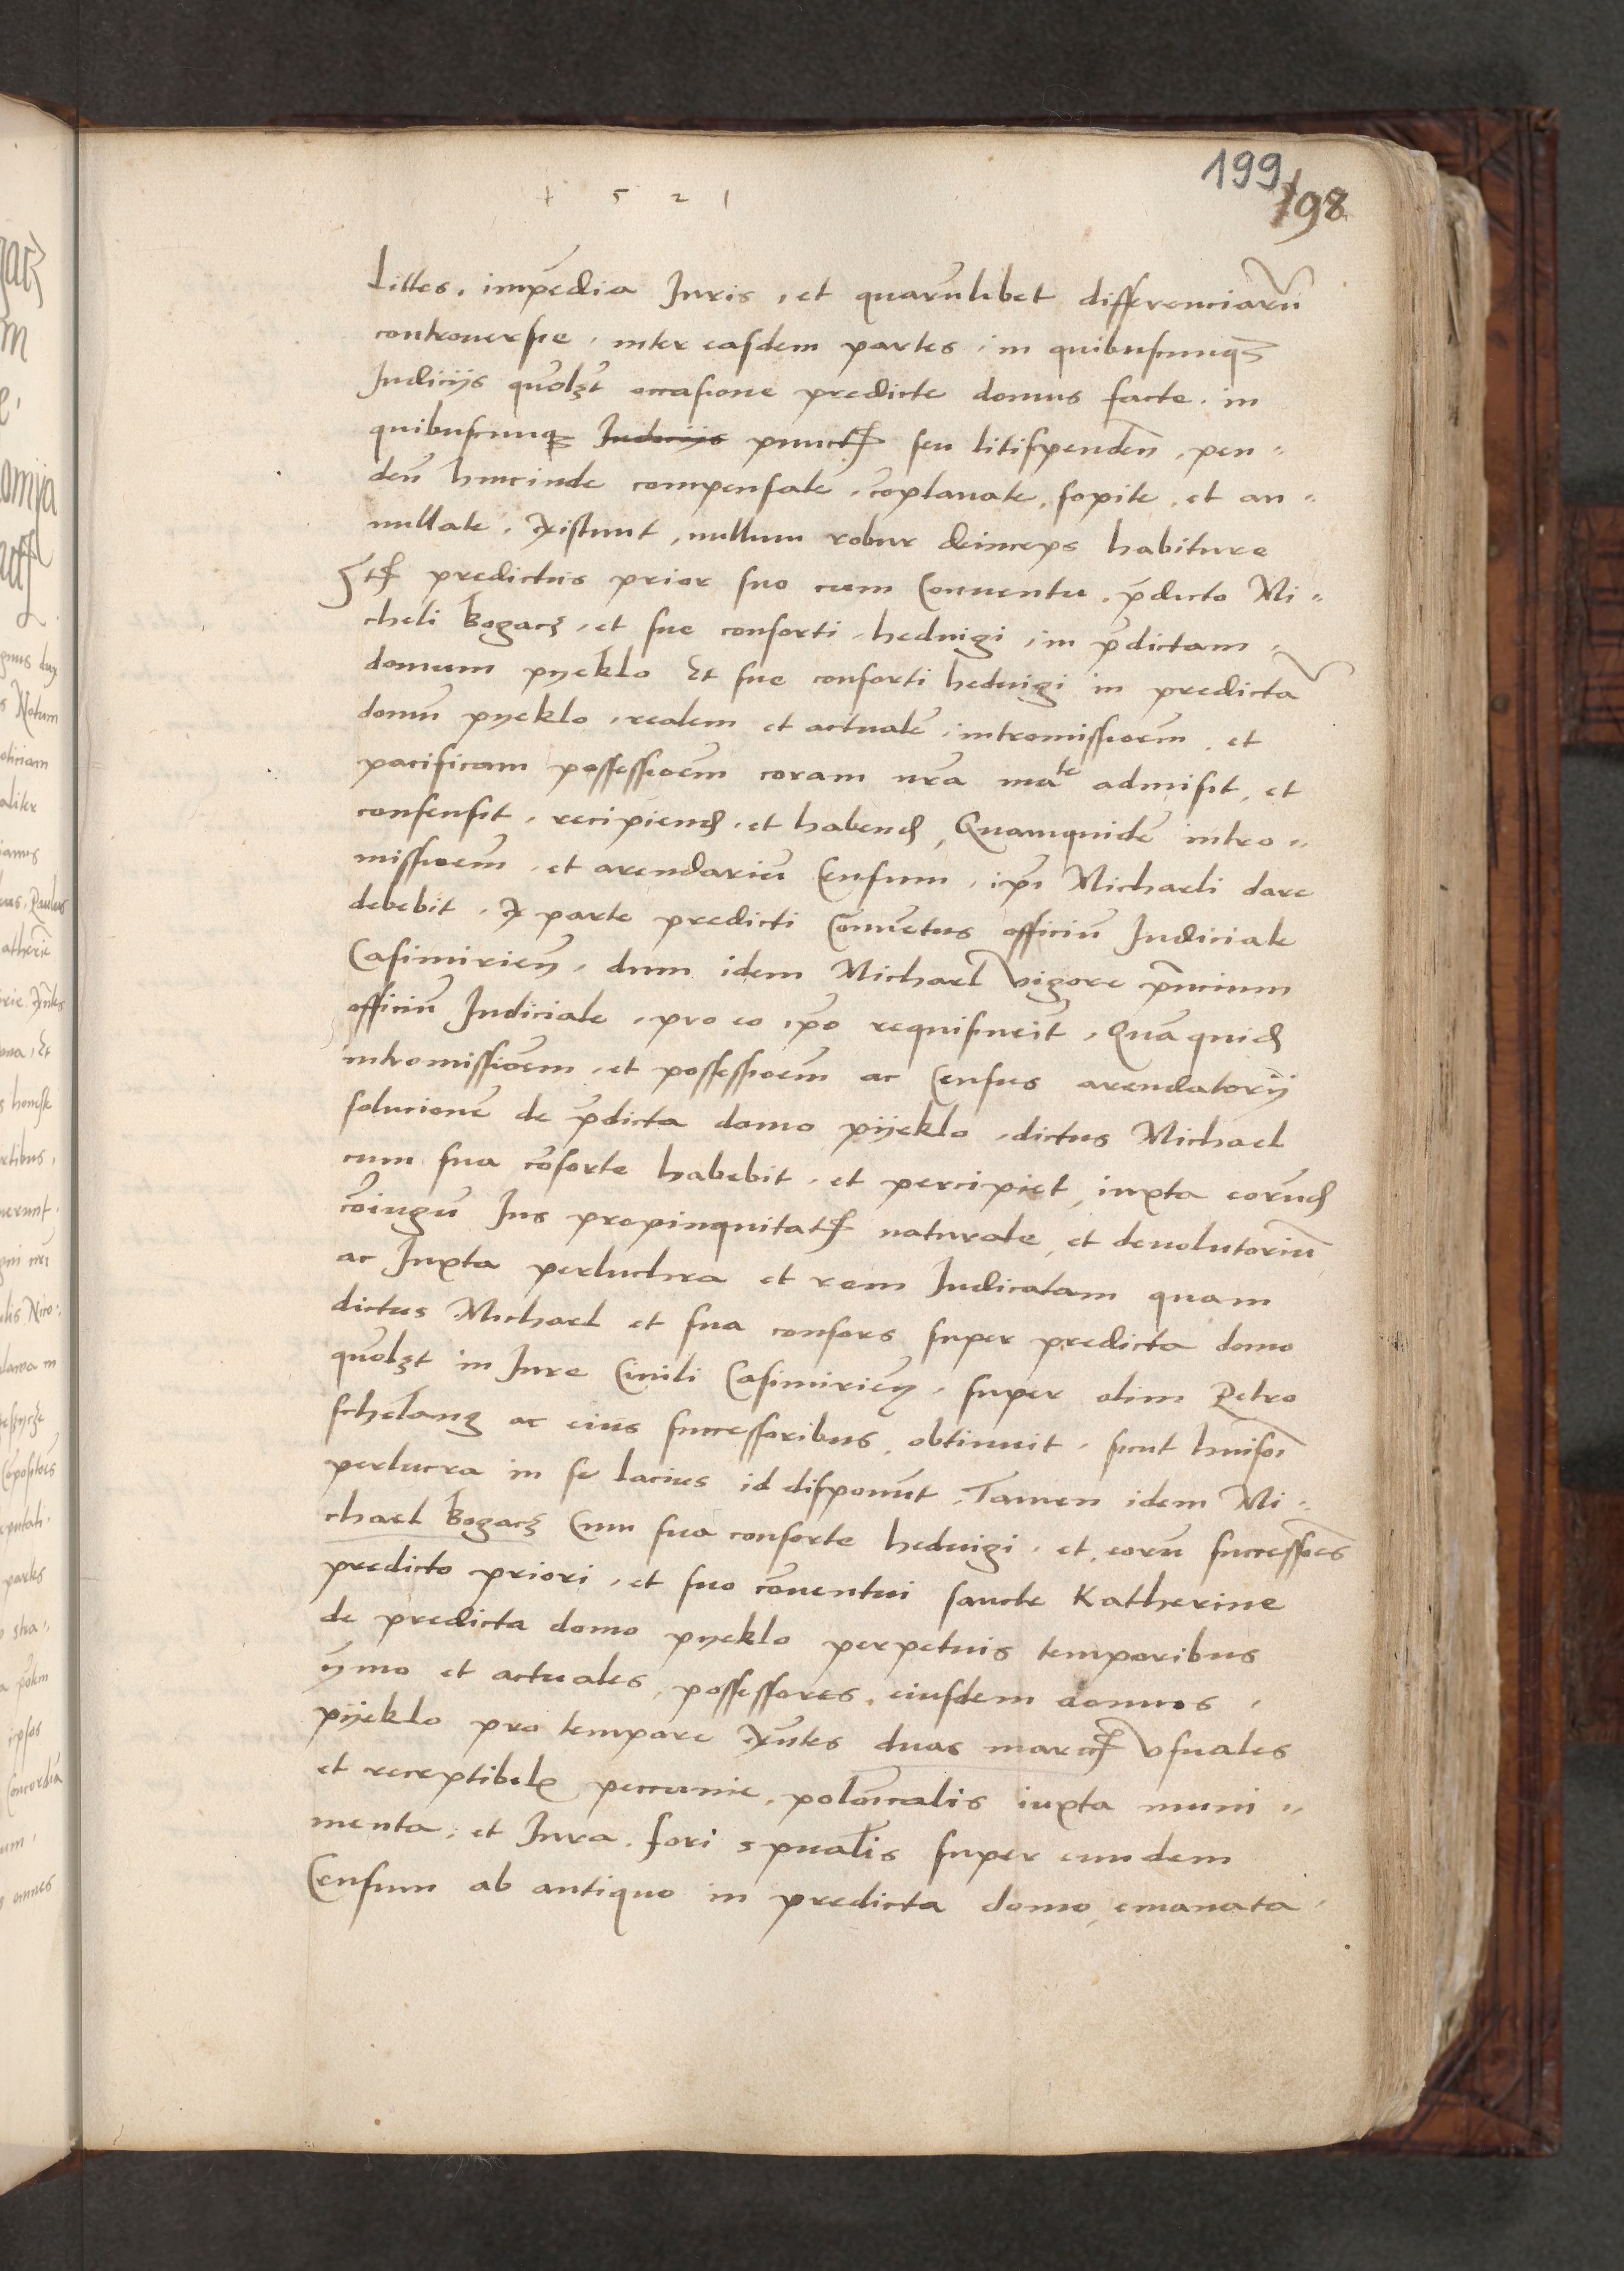 199
198
1 5 2 1
Littes, impēdia Juris, et quarūlibet differenciarū
controuersie, inter easdem partes, in quibuscunqȝ
Judicijs quolȝt occasione predicte domus facte, in
quibuscunqȝ Judicijs punctꝭ seu litispendeñ, pen=
deñ hincinde compensate, cōplanate, sopite, et an=
nullate, existunt, nullum robur deinceps habiture
predictus prior suo cum Conuentu, p̄dicto Mi=
cheli Bogacz, et sue consorti, heduigi, in p̄dictam=
domum pyeklo Et sue consorti heduigi in predicta
domū pyeklo, realem et actualē, intromissioēm, et
pacificam possessioēm coram nr̄a mate admisit, et
consensit, recipiend, et habend, Quamquidē intro=
missioēm, et arendariū Censum, ip̄i Michaeli dare
debebit, ex parte predicti Conuētus officiū Judiciale
Casimirieñ, dum idem Michael vigore p̄ncium
officiū Judiciale, pro eo ip̄o requisiueīt, Quā quid
intromissioēm, et possessioēm ac Census arendatorij
solucionē de p̄dicta domo pijeklo, dictus Michael
cum sua cōsorte habebit, et percipiet, iuxta eorund
cōiugū Jus propinquitatꝭ naturale, et deuolutoriū
ac Juxta perluchra et rem Judicatam quam
dictus Michael et sua consors super predicta domo
quolȝt in Jure Ciuili Casimirieñ, super olim Petro
schelang ac eius successoribus, obtinuit, sicut huiſoī
perlucra in se lacius id disponūt, Tamen idem Mi=
chael Bogacz Cum sua consorte heduigi, et eorū successoēs
predicto priori, et suo cōuentui sancte Katherine
de predicta domo pyeklo perpetuis temporibus
ymo et actuales, possessores, eiusdem domus,
pijeklo pro tempore exn̄tes duas marcꝭ vsuales
et receptibilꝭ peccunie, polōicalis iuxta muni=
menta, et Jura, fori spūalis super eundem
Censum ab antiquo in predicta domo, emanata,